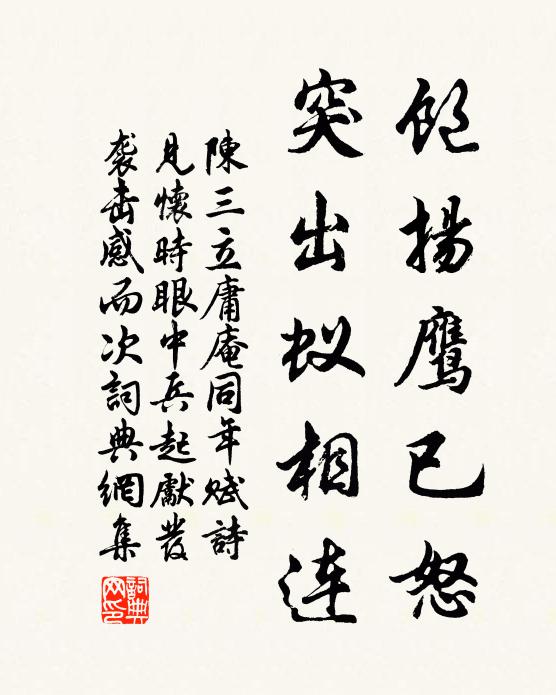 飽揚鷹已怒
突出蚁相连
陳三立庸庵同年赋詩
見懷時眼中兵起獻發
袭击感而次詞典網集
詞典